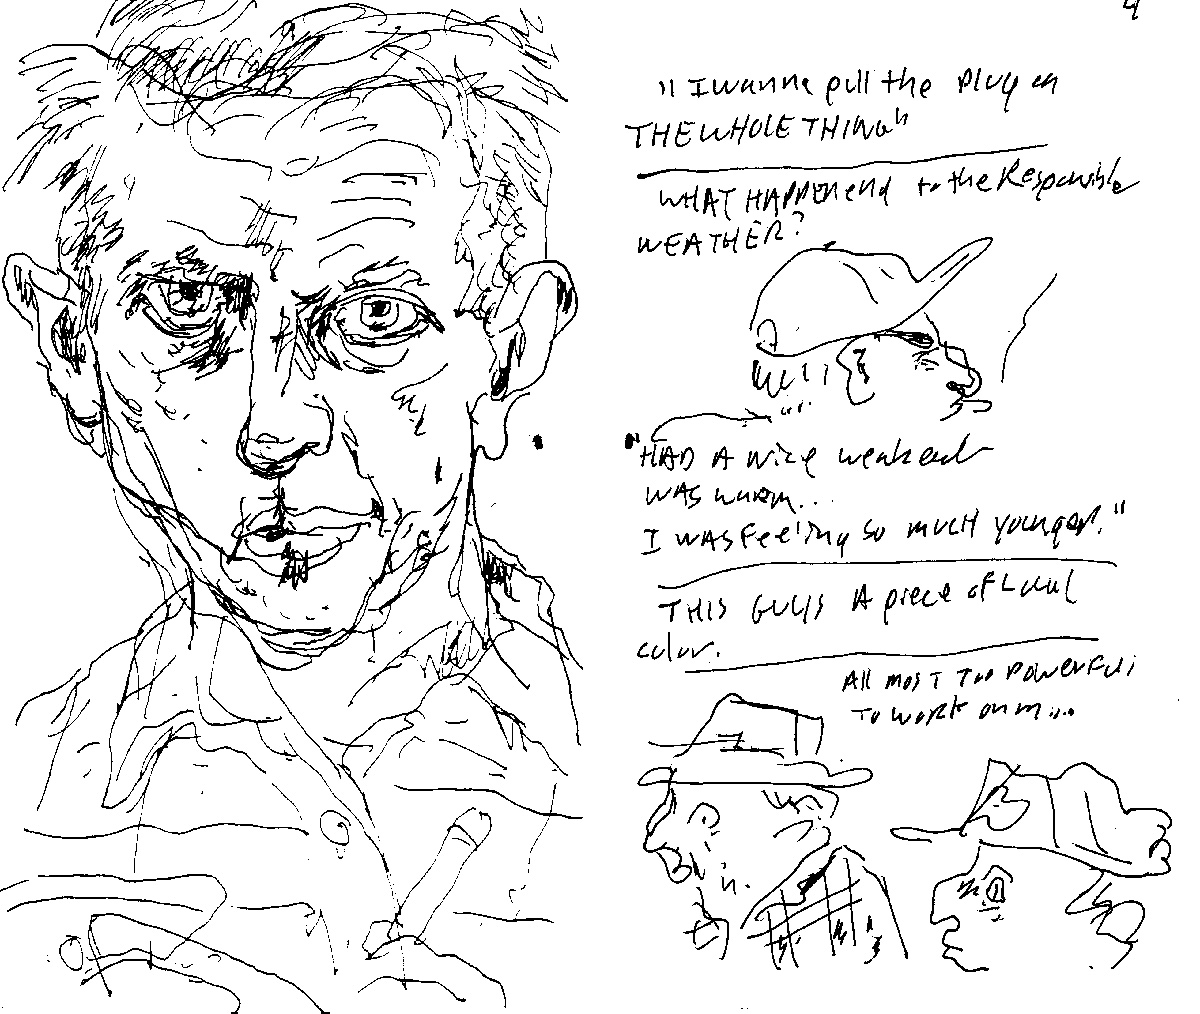 4
"I wanna pull the plug on
THE WHOLE THING"
WHAT HAPPENEND to the Responsible
WEATHER?
"HAD A Nice weakend
WAS warm...
I WAS Feeling so much younger."
THIS GUYS A piece of Local
color.
All MOST Too Powerfull
To work on m...